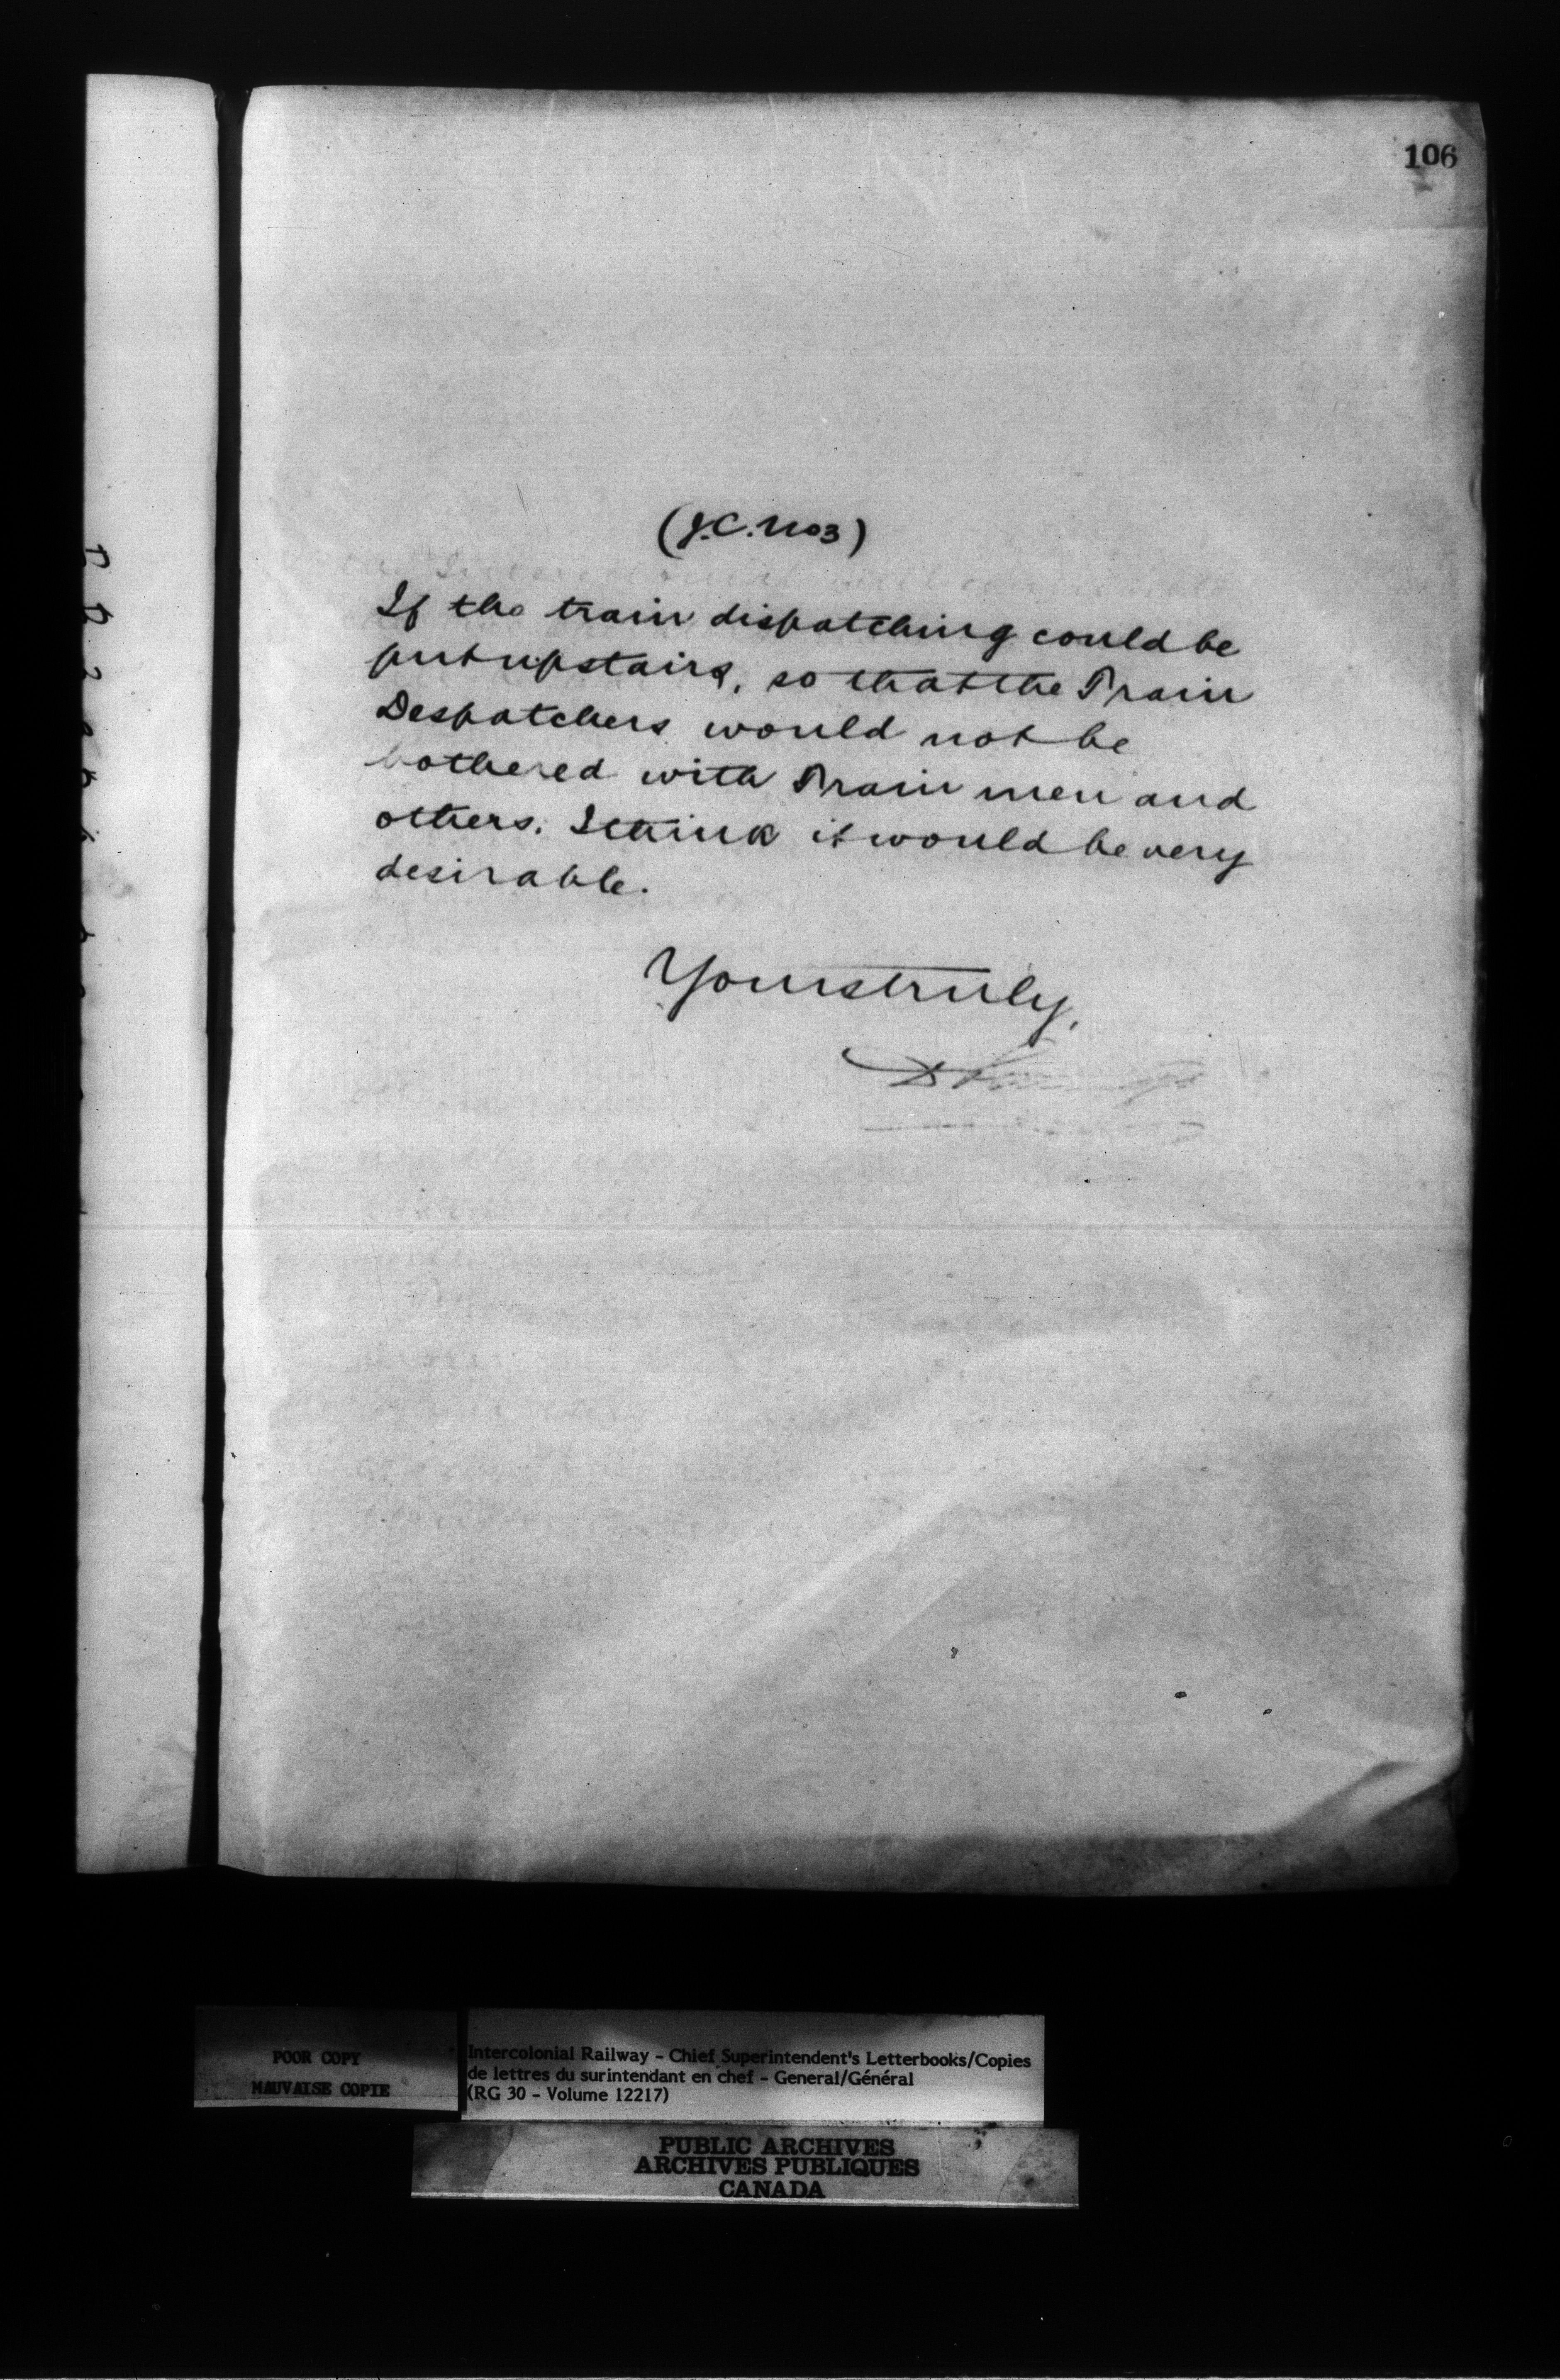 106
(J.C. No 3)
If the train dispatching could be
put upstairs, so that the Train
Despatchers would not be
bothered with Train men and
others. I think it would be very
desirable.
Yours truly,
POOR COPY
MAUVAISE COPIE
Intercolonial Railway - Chief Superintendent's Letterbooks/Copies
de lettres du surintendant en chef - General/Général
(RG 30 - Volume 12217)
PUBLIC ARCHIVES
ARCHIVES PUBLIQUES
CANADA